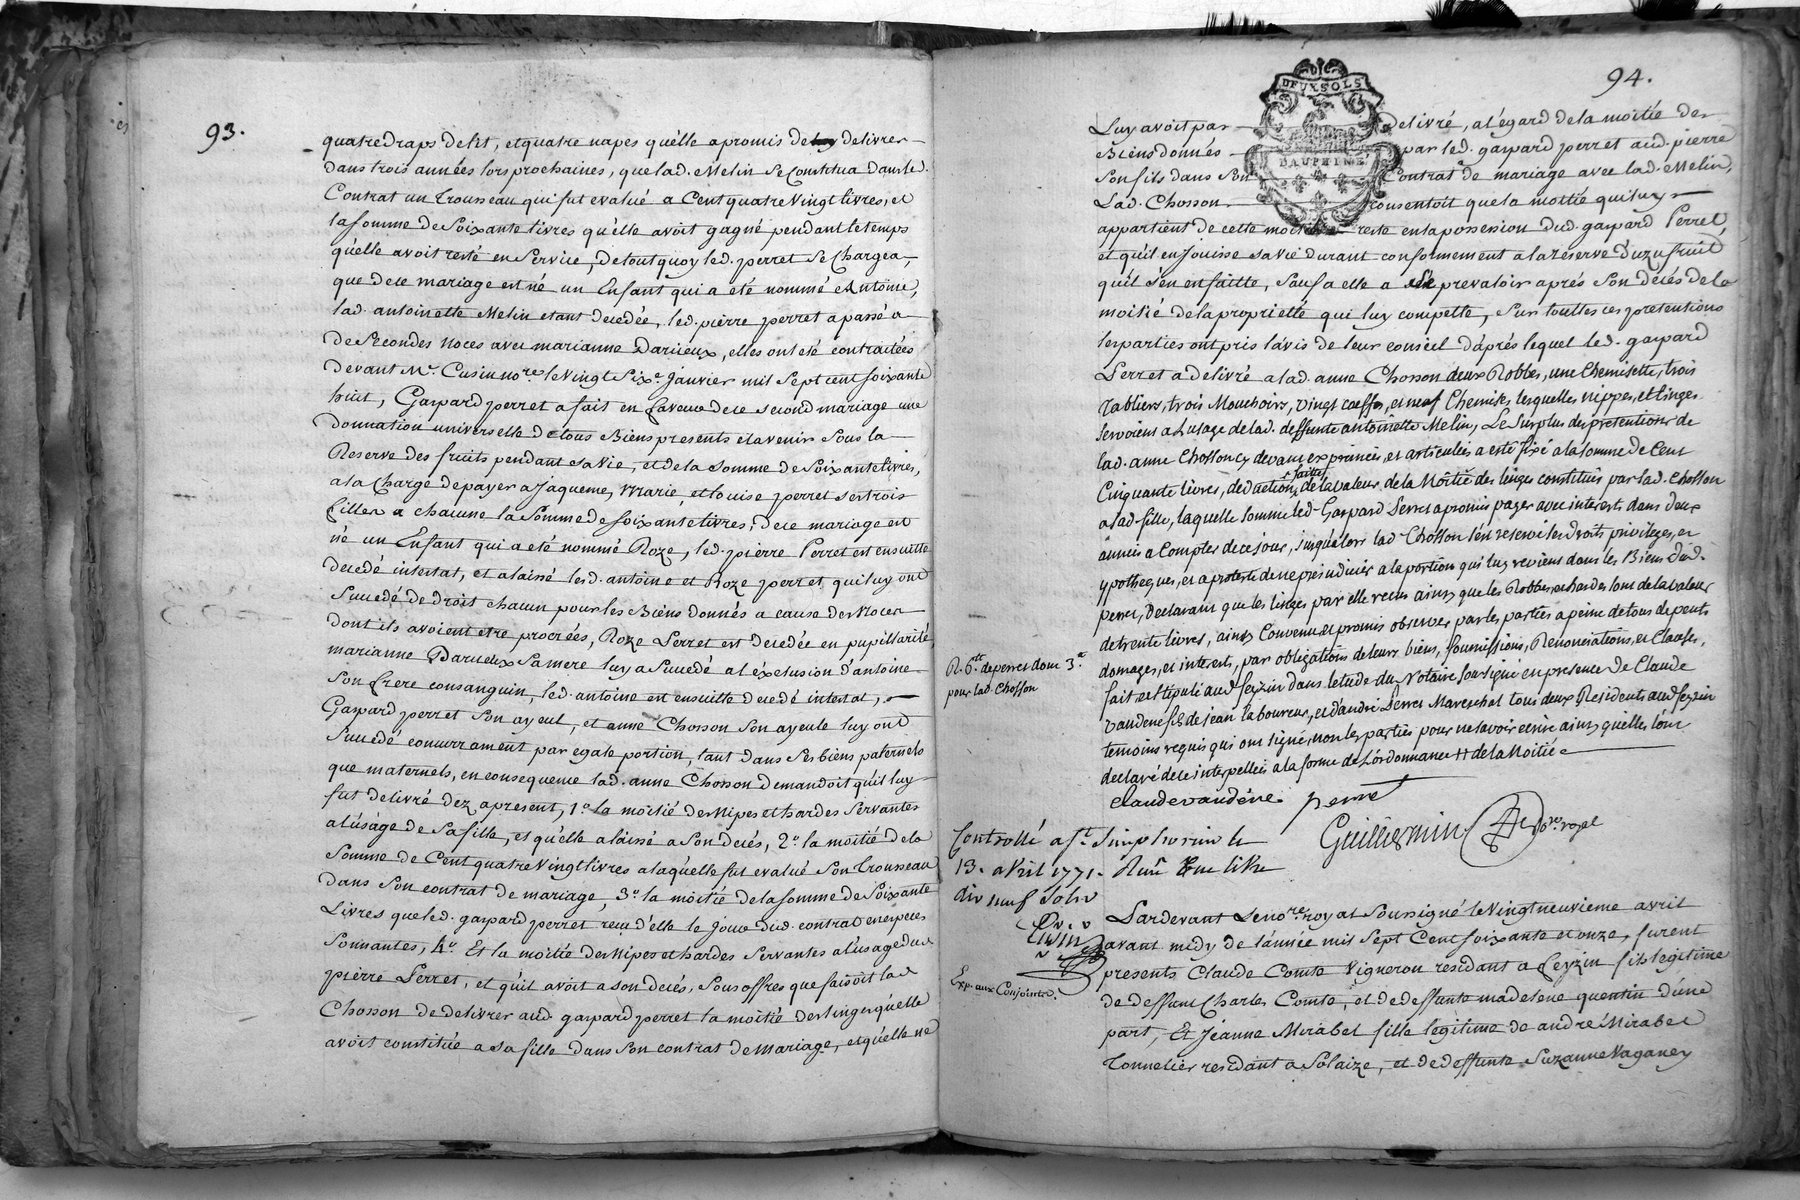 93.
quatre draps de lit, et quatre napes qu'elle a promis de delivrer
dans trois années lors prochaines, que lad. Melin se Constitua dans led.
Contrat un trousseau qui fut evalué a Cent quatre Vingt livres, et
la somme de Soixante livres qu'elle avoit gagné pendant le temps
qu'elle avoit resté en Service, de tout quoy led. perret se Chargea,
que de ce mariage est né un Enfant qui a été nommé Antoine,
lad. antoinette Melin etant decedée, led. pierre perret a passé a
de Secondes Noces avec marianne Darieux, elles ont été contractées
devant Mr. Cusin nore. le Vingt Sixe. Janvier mil Sept cent soixante
huit, Gaspard perret a fait en faveur de ce second mariage une
Donnation universelle de tous Biens presents et avenir Sous la
Reserve des fruits pendant sa Vie, et de la somme de Soixante livres,
a la Charge de payer a Jaqueme, Marie, et Louise perret ses trois
filles a chacune la Somme de soixante livres; de ce mariage est
né un Enfant qui a eté nommé Roze, led. pierre Perret est ensuitte
decedé intestat, et a laissé lesd. antoine et Roze perret qui luy ont
Succedé de droit chacun pour les Biens donnés a cause des Noces
dont ils avoient etre procrées, Roze Perret est decedée en pupillarité,
marianne Darieux Sa mere luy a Succedé a l'exclusion d'antoine
Son frere consanguin, led. antoine est ensuitte decedé intestat,
Gaspard perret Son ayeul, et anne Chosson Son ayeule luy ont
Succedé concurrament par egale portion, tant dans Ses biens paternels
que maternels, en consequence lad. anne Chosson demandoit qu'il luy
fut delivré dez apresent, 1o. la moitié des Nipes et hardes Servantes
a l'usage de Sa fille, et qu'elle a laissé a Son decés, 2o. la moitié de la
Somme de Cent quatre Vingt livres a laquelle fut evalué Son trousseau
dans Son contrat de mariage, 3o. la moitié de la somme de Soixante
Livres que led. gaspard perret recu d'elle le jour dud. contrat en especes
Sonnantes, 4o. Et la moitié des Nipes et hardes Servantes a l'usage dud.
pierre Perret, et qu'il avoit a son decés, Sous offres que faisoit lad.
Chosson de delivrer aud. gaspard perret la moitié des linges qu'elle
avoit constitué a sa fille dans Son contrat de Mariage, et qu'elle ne
94.
DEUX SOLS
DAUPHINÉ
Luy avoit pas delivré, a l'égard de la moitié des
Biens donnés par led. gaspard perret aud. pierre
Son fils dans Son Contrat de mariage avec lad. Melin,
Lad. Chosson consentoit que la moitié qui luy
appartient de cette moitié reste en la possession dud. gaspard Perret,
et qu'il en jouisse sa vie durant conformement a la réserve d'uzufruit
qu'il s'en est faitte, Sauf a elle a prevaloir aprés Son decés de la
moitié de la proprietté qui luy compette, Sur touttes ces pretentions
les parties ont pris l'avis de leur conseil d'aprés lequel led. gaspard
Perret a delivré a lad. anne Chosson deux Robbes, une Chemisette, trois
Tabliers, trois Mouchoirs, vingt coeffes, et neuf Chemises, lesquelles nippes, et linges
servoient a l'usage de lad. deffunte antoinette Melin, Le Surplus des pretentions de
lad. anne Chosson cy devant exprimées, et articulées a esté fixé a la somme de Cent
Cinquante livres, deduction faitte de la valeur de la Moitié des linges constitués par lad. Chosson
a lad. fille, laquelle somme led. Gaspard Perret a promis payer avec interests dans deux
années a Compter de ce jour, jusqu'alors lad. Chosson s'en reservé ses droits privileges, et
ypotheques, et a protesté de ne prejudicier a la portion qui luy revient dans les Biens dud.
perret, Declarant que les linges par elle recus ainsy que les Robbes, et hardes sont de la valeur
de trente livres, ainsy Convenu, et promis observer par les parties a peine de tous depents
domages, et interests, par obligations de leurs biens, soumissions, Renonciations, et Clauses,
fait, et stipulé aud. feyzin dans l'etude du Notaire soussigné en presence de Claude
Vaudene fils de jean laboureur, et d'andré Perret Marechal tous deux Residents aud. feyzin
temoins requis qui ont signé, non les parties pour ne savoir ecrire ainsy qu'elles l'ont
declaré de ce interpellées a la forme de l'ordonnance ++ de la Moitié
claude vaudéne perret
Guillermin nore. royal
R. 6tt. de perret dont 3tt.
pour lad. Chosson
Controllé a St. Simphorien le
13. avril 1771.
dix neuf Sols
Cusin
Exp. aux Conjoints.
Pardevant Le nore. royal Soussigné le Vingt neuvieme avril
avant midy de l'année mil Sept Cent soixante et onze, furent
presents Claude Comte Vigneron residant a feyzin fils legitime
de deffunt Charles Comte, et de deffunte madelene quentin d'une
part, Et Jeanne Mirabel fille legitime de andré Mirabel
Tonnelier residant a Solaize, et de deffunte Suzanne Vaganey